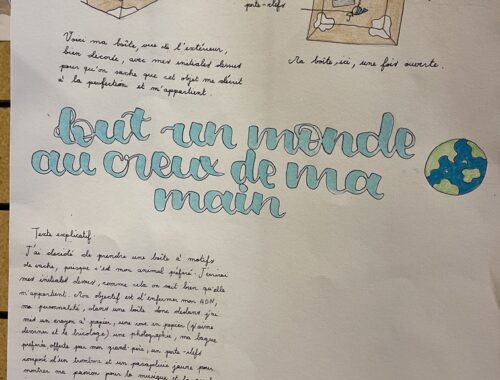 porte-clefs
Voici ma boîte, vue de l'extérieur,
bien decorée, avec mes initiales dessus
pour qu'on sache que cet objet me décrit
à la perfection et m'appartient.
Ma boîte, ici, une fois ouverte.
tout un monde
au creux de ma
main
Texte explicatif
J'ai decidé de prendre une boîte à motifs
de vache, puisque c'est mon animal préféré. J'
mes initiales dessus, comme cela on sait bien qu'elle
m'appartient. Mon objectif est d'enfermer mon ADN,
ma personnalité, dans une boîte donc dedans j'ai
mis un crayon à papier, une rose en papier (j'aime
dessiner et le bricolage) une photographie, ma bague
préférée offerte par mon grand-père, un porte-clefs
composé d'un trombone et un parapluie jaune pour
montrer ma passion pour la musique et